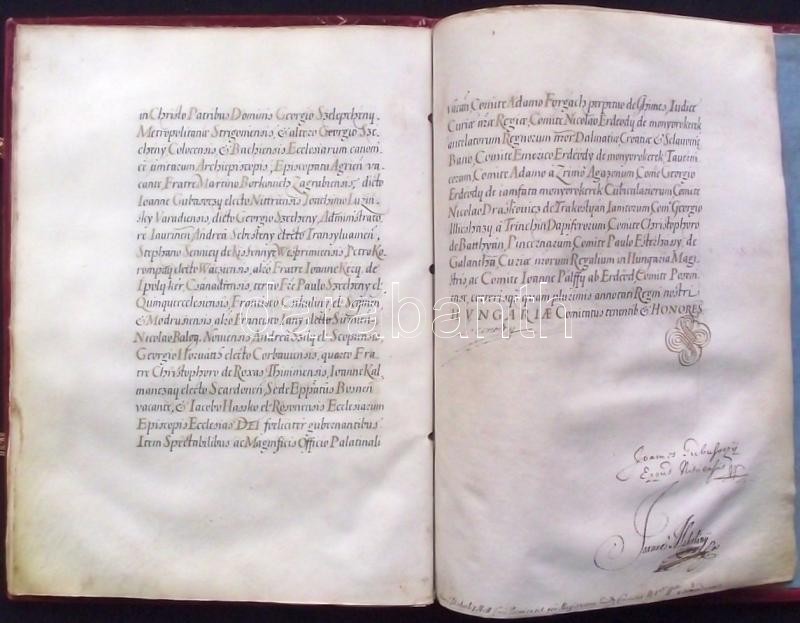 in Christo Patribus Dominis Georgio Szelepcheny.
Metropolitanæ Strigoniensis, & altero Georgio Sze-
cheny Colocensis, & Bachiensis Ecclesiarum canoni-
ce unitarum Archiepiscopis, Episcopatu Agrien va-
cante, Fratre Martino Borkovich Zagrabiensis, dicto
Joanne Gubasoczy electo Nittriensis, Joachimo Luzin-
sky Varadiensis, dicto Georgio Szecheny Administrato-
re Jaurinen Andrea Sebesteny electo Transyluanien,
Stephano Sennyey de kis Sennye Wesprimiensis, Petro Ko-
rompay electo Waciensis, alio Fratre Joanne Kery, de
Ipolyker, Csanadiensis, tertio Paulo Szecheny el.
Quinqueecclesiensis, Francisco
& Modrusiensis, alio Francisco electo
Nicolao Balog, Novensis, Andrea el. Scopiensis,
Georgio Horuatis electo Corbauiensis, quarto Fra-
tre Christophoro de Roxas Thininiensis, Joanne Kal-
manczay electo Scardonen, Sede Eppatus Bosnen
vacante, & Jacobo Hasko el. Rosonensis Ecclesiarum
Episcopis Ecclesias DEI fœliciter gubernantibus
Item Spectabilibus ac Magnificis Officio Palatinali
vacan, Comite Adamo Forgach perpetuo de Ghimes, Judice
Curiæ nræ Regiæ, Comite Nicolao Erdeody de monyorokerek
antelatorum Regnorum nror Dalmatiæ Croatiæ & Sclavoniæ
Bano, Comite Emerico Erdeody de monyorokerek Tauerni-
corum Comite Adamo à Zrinio Agazonum Comite Georgio
Erdeody de iamfata monyorokerek Cubiculariorum Comite
Nicolao Draskovics de Trakostyan Janitorum Com: Georgio
Illieshazy à Trinchin Dapiferorum Comite Christophoro
de Batthyan, Pincernarum Comite Paulo Eszterhasy, de
Galantha Curiæ nrorum Regalium in Hungaria Magi
stris, ac Comite Joanne Palffy ab Erdeod Comit Poson
cæterisq quam plurimis annotati Regni nostri
VNGARIÆ Comitatus tenentib & HONORES.
darabanth
Joannes Gubasoczy
Joannes